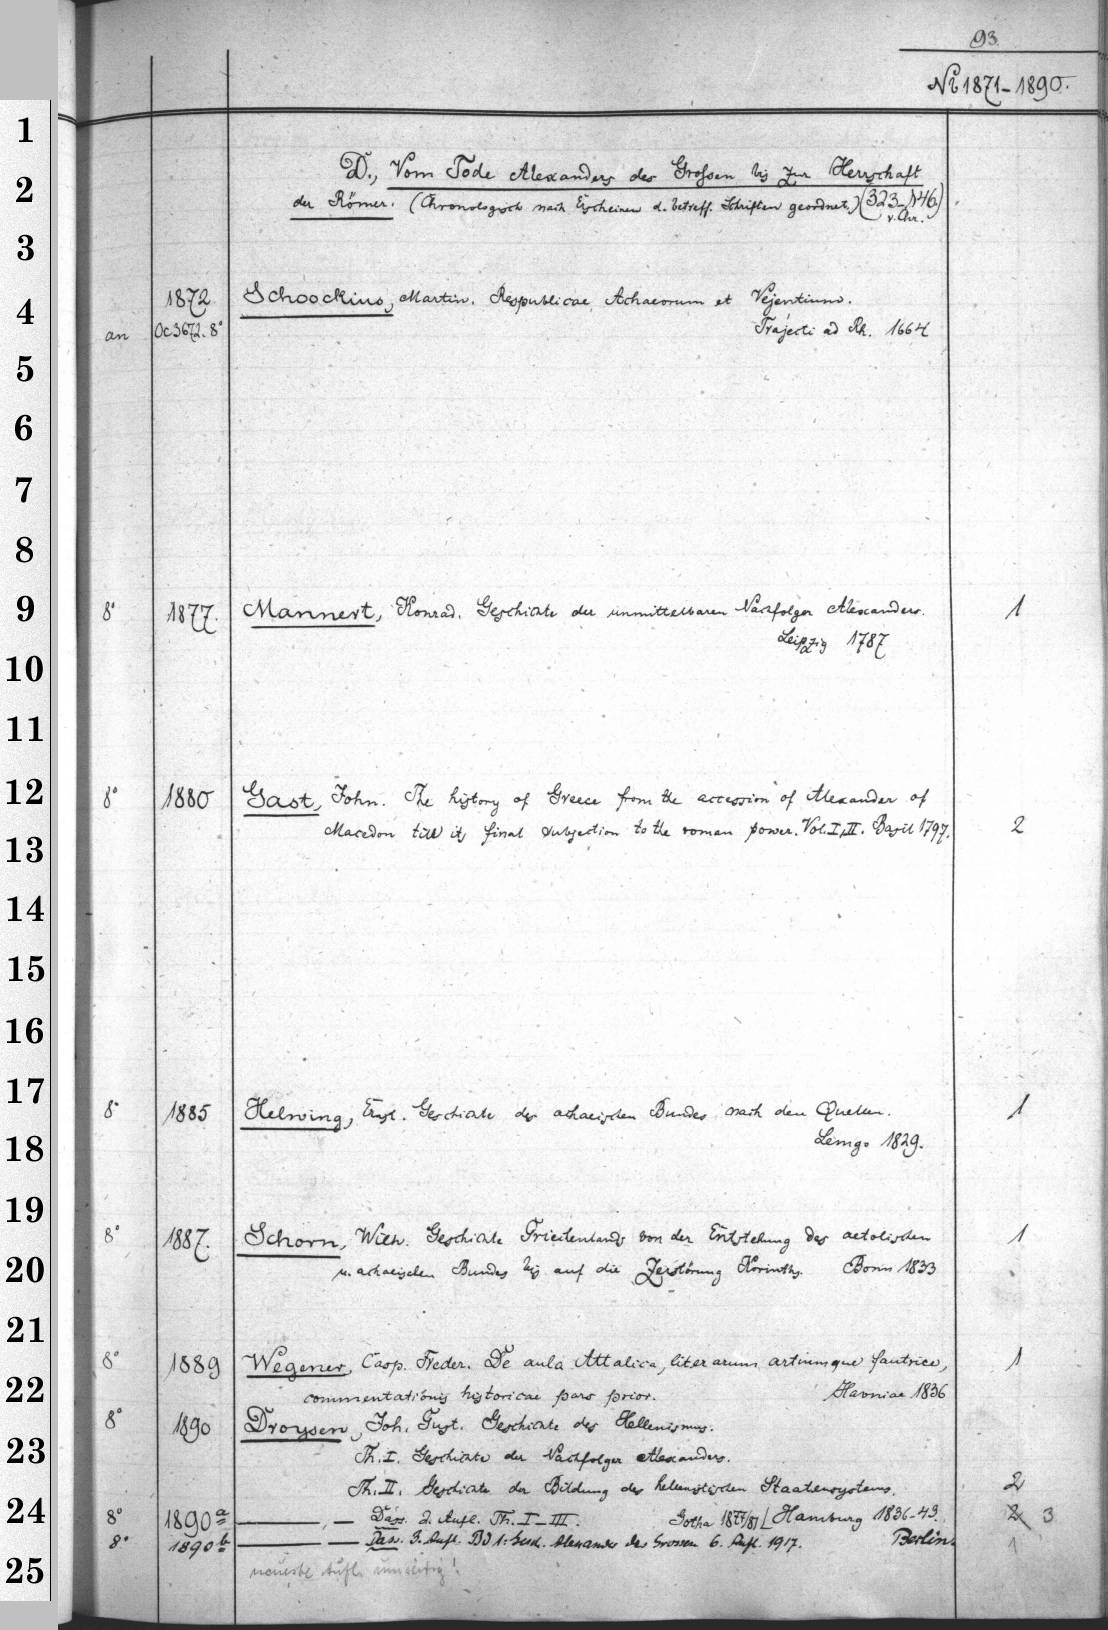 93.
№ 1871-1890.
D., Vom Tode Alexanders des Grossen bis zur Herrschaft
der Römer. (Chronologisch nach Erscheinen d. betreff. Schriften geordnet.) (323-146)
v. Chr.
1872 Schoockius, Martin. Respublicae Achaeorum et Vejentium.
an Oc 3672. 8° Trajecti ad Rh. 1664
8° 1877. Mannert, Konrad. Geschichte der unmittelbaren Nachfolger Alexanders. 1
Leipzig 1787
8° 1880 Gast, John. The history of Greece from the accession of Alexander of
Macedon till its final subjection to the roman power. Vol. I, II. Basil 1797. 2
8° 1885 Helwing, Ernst. Geschichte des achaeischen Bundes nach den Quellen. 1
Lemgo 1829.
8° 1887. Schorn, Wilh. Geschichte Griechenlands von der Entstehung des aetolischen 1
u. achaeischen Bundes bis auf die Zerstörung Korinths. Bonn 1833
8° 1889 Wegener, Casp. Freder. De aula Attalica, literarum artiumque fautrice, 1
commentationis historicae pars prior. Havniae 1836
8° 1890 Droysen, Joh. Gust. Geschichte des Hellenismus.
Th. I. Geschichte der Nachfolger Alexanders.
Th. II. Geschichte der Bildung des hellenistischen Staatensystems. 2
8° 1890a ——, — Dass. 2. Aufl. Th. I-III. Gotha 1877/87 [Hamburg 1836-43. 2 3
8° 1890b —— — Dass. 3. Aufl. BD 1: Gesch. Alexanders des Grossen 6. Aufl. 1917. Berlin. 1
neueste Aufl.
1
2
3
4
5
6
7
8
9
10
11
12
13
14
15
16
17
18
19
20
21
22
23
24
25